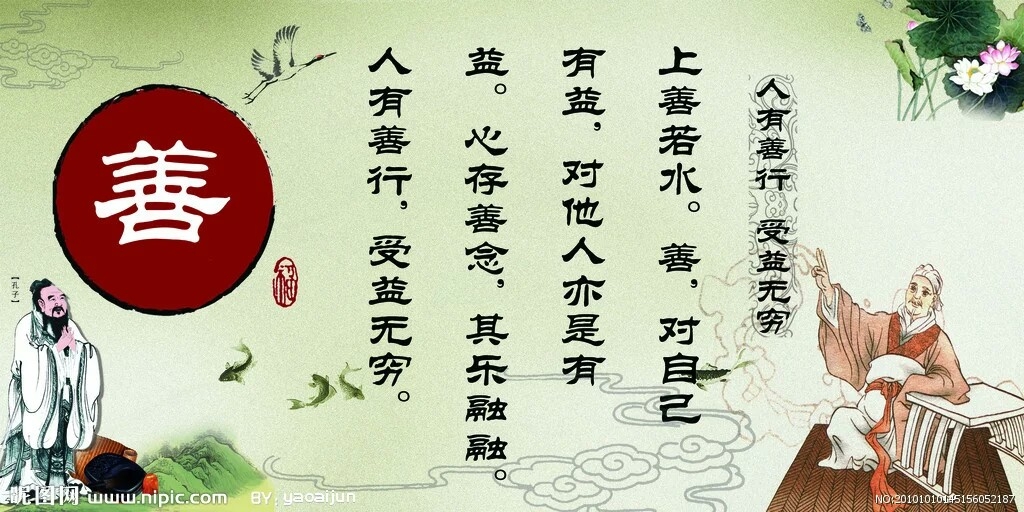 人有善行 受益无穷
上善若水。善，对自己
有益，对他人亦是有
益。心存善念，其乐融融。
人有善行，受益无穷。
善
【孔子】
昵图网 www.nipic.com BY: yaoaijun
NO:20101010145156052187